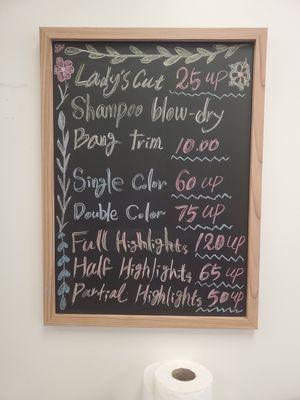 Lady's Cut 25 up
Shampoo blow-dry
Bang trim 10.00
Single Color 60 up
Double Color 75 up
Full Highlights 120 up
Half Highlights 65 up
Partial Highlights 50 up